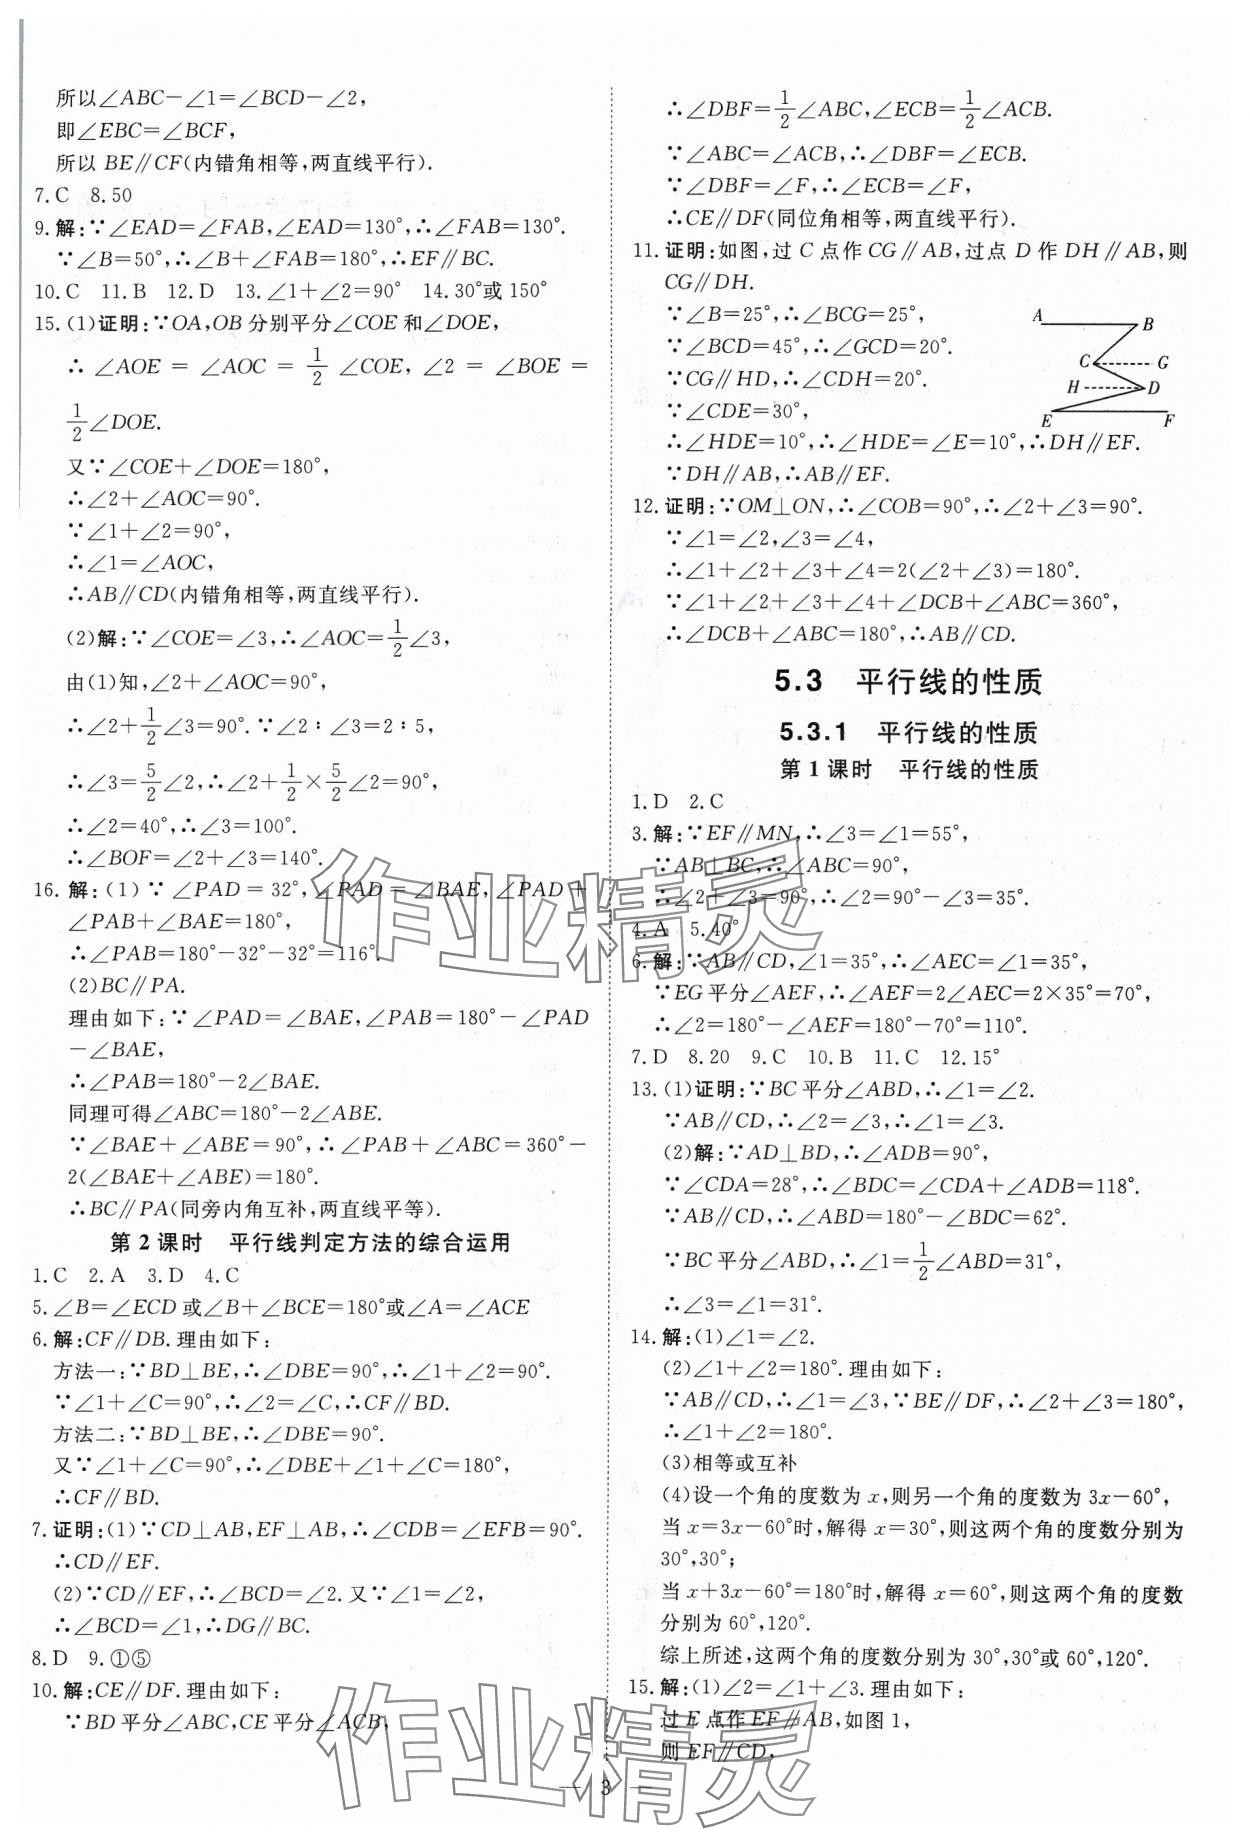 所以∠ABC－∠1＝∠BCD－∠2,
即∠EBC＝∠BCF,
所以 BE∥CF(内错角相等,两直线平行).
7.C 8.50
9.解:∵∠EAD＝∠FAB,∠EAD＝130°,∴∠FAB＝130°.
∵∠B＝50°,∴∠B＋∠FAB＝180°,∴EF∥BC.
10.C 11.B 12.D 13.∠1＋∠2＝90° 14.30°或150°
15.(1)证明:∵OA,OB 分别平分∠COE 和∠DOE,
∴∠AOE ＝ ∠AOC ＝ 1/2 ∠COE, ∠2 ＝ ∠BOE ＝
1/2∠DOE.
又∵∠COE＋∠DOE＝180°,
∴∠2＋∠AOC＝90°.
∵∠1＋∠2＝90°,
∴∠1＝∠AOC,
∴AB∥CD(内错角相等,两直线平行).
(2)解:∵∠COE＝∠3,∴∠AOC＝1/2∠3,
由(1)知,∠2＋∠AOC＝90°,
∴∠2＋1/2∠3＝90°.∵∠2∶∠3＝2∶5,
∴∠3＝5/2∠2,∴∠2＋1/2×5/2∠2＝90°,
∴∠2＝40°,∴∠3＝100°.
∴∠BOF＝∠2＋∠3＝140°.
16.解:(1)∵∠PAD＝32°,∠PAD＝∠BAE,∠PAD＋
∠PAB＋∠BAE＝180°,
∴∠PAB＝180°－32°－32°＝116°.
(2)BC∥PA.
理由如下:∵∠PAD＝∠BAE,∠PAB＝180°－∠PAD
－∠BAE,
∴∠PAB＝180°－2∠BAE.
同理可得∠ABC＝180°－2∠ABE.
∵∠BAE＋∠ABE＝90°,∴∠PAB＋∠ABC＝360°－
2(∠BAE＋∠ABE)＝180°.
∴BC∥PA(同旁内角互补,两直线平等).
第2课时 平行线判定方法的综合运用
1.C 2.A 3.D 4.C
5.∠B＝∠ECD 或∠B＋∠BCE＝180°或∠A＝∠ACE
6.解:CF∥DB.理由如下:
方法一:∵BD⊥BE,∴∠DBE＝90°,∴∠1＋∠2＝90°.
∵∠1＋∠C＝90°,∴∠2＝∠C,∴CF∥BD.
方法二:∵BD⊥BE,∴∠DBE＝90°.
又∵∠1＋∠C＝90°,∴∠DBE＋∠1＋∠C＝180°,
∴CF∥BD.
7.证明:(1)∵CD⊥AB,EF⊥AB,∴∠CDB＝∠EFB＝90°.
∴CD∥EF.
(2)∵CD∥EF,∴∠BCD＝∠2.又∵∠1＝∠2,
∴∠BCD＝∠1,∴DG∥BC.
8.D 9.①⑤
10.解:CE∥DF.理由如下:
∵BD 平分∠ABC,CE 平分∠ACB,
∴∠DBF＝1/2∠ABC,∠ECB＝1/2∠ACB.
∵∠ABC＝∠ACB,∴∠DBF＝∠ECB.
∵∠DBF＝∠F,∴∠ECB＝∠F,
∴CE∥DF(同位角相等,两直线平行).
11.证明:如图,过 C 点作 CG∥AB,过点 D 作 DH∥AB,则
CG∥DH.
∵∠B＝25°,∴∠BCG＝25°,
∵∠BCD＝45°,∴∠GCD＝20°.
∵CG∥HD,∴∠CDH＝20°.
∵∠CDE＝30°,
∴∠HDE＝10°,∴∠HDE＝∠E＝10°,∴DH∥EF.
∵DH∥AB,∴AB∥EF.
A
B
C
G
H
D
E
F
12.证明:∵OM⊥ON,∴∠COB＝90°,∴∠2＋∠3＝90°.
∵∠1＝∠2,∠3＝∠4,
∴∠1＋∠2＋∠3＋∠4＝2(∠2＋∠3)＝180°.
∵∠1＋∠2＋∠3＋∠4＋∠DCB＋∠ABC＝360°,
∴∠DCB＋∠ABC＝180°,∴AB∥CD.
5.3 平行线的性质
5.3.1 平行线的性质
第1课时 平行线的性质
1.D 2.C
3.解:∵EF∥MN,∴∠3＝∠1＝55°,
∵AB⊥BC,∴∠ABC＝90°,
∴∠2＋∠3＝90°,∴∠2＝90°－∠3＝35°.
4.A 5.40°
6.解:∵AB∥CD,∠1＝35°,∴∠AEC＝∠1＝35°,
∵EG 平分∠AEF,∴∠AEF＝2∠AEC＝2×35°＝70°,
∴∠2＝180°－∠AEF＝180°－70°＝110°.
7.D 8.20 9.C 10.B 11.C 12.15°
13.(1)证明:∵BC 平分∠ABD,∴∠1＝∠2.
∵AB∥CD,∴∠2＝∠3,∴∠1＝∠3.
(2)解:∵AD⊥BD,∴∠ADB＝90°,
∵∠CDA＝28°,∴∠BDC＝∠CDA＋∠ADB＝118°.
∵AB∥CD,∴∠ABD＝180°－∠BDC＝62°.
∵BC 平分∠ABD,∴∠1＝1/2∠ABD＝31°,
∴∠3＝∠1＝31°.
14.解:(1)∠1＝∠2.
(2)∠1＋∠2＝180°.理由如下:
∵AB∥CD,∴∠1＝∠3,∵BE∥DF,∴∠2＋∠3＝180°,
∴∠1＋∠2＝180°.
(3)相等或互补
(4)设一个角的度数为 x,则另一个角的度数为 3x－60°,
当 x＝3x－60°时,解得 x＝30°,则这两个角的度数分别为
30°,30°;
当 x＋3x－60°＝180°时,解得 x＝60°,则这两个角的度数
分别为 60°,120°.
综上所述,这两个角的度数分别为 30°,30°或 60°,120°.
15.解:(1)∠2＝∠1＋∠3.理由如下:
过 E 点作 EF∥AB,如图 1,
则 EF∥CD,
— 3 —
作业精灵
作业精灵